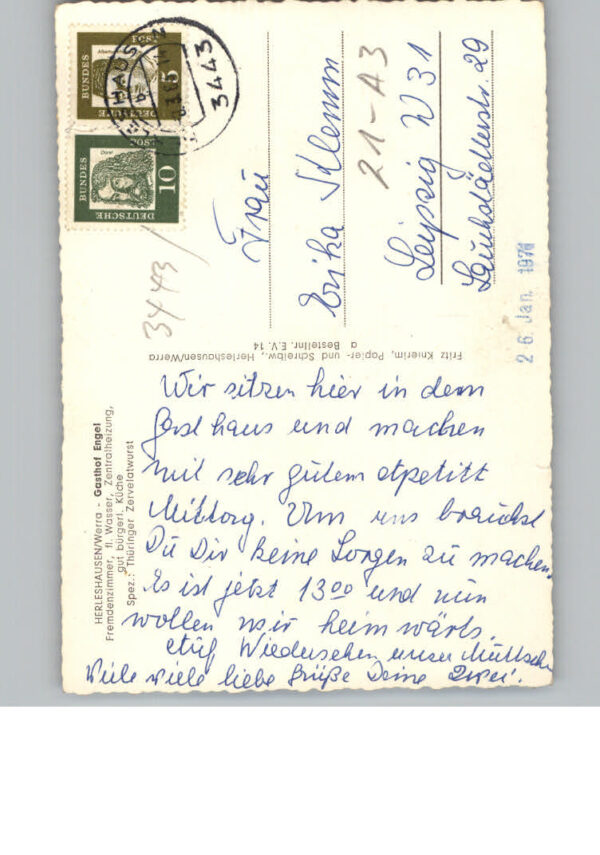 HERLESHAUSEN/Werra - Gasthof Engel
Fremdenzimmer, fl. Wasser, Zentralheizung,
gut bürgerl. Küche
Spez.: Thüringer Zervelatwurst
Fritz Knierim, Papier- und Schreibw., Herleshausen/Werra
a Bestellnr. E.V. 14
DEUTSCHE
BUNDES
POST
5
DEUTSCHE
BUNDES
POST
Dürer
10
3443
3443/
21-A3
Frau
Erika Klemm
Leipzig W 31
Lauchstädterstr. 29
26. Jan. 1971
Wir sitzen hier in dem
Gasthaus und machen
mit sehr gutem Apetitt
Mittag. Um uns brauchst
Du Dir keine Sorgen zu machen.
Es ist jetzt 13⁰⁰ und nun
wollen wir heimwärts.
Auf Wiedersehen unser Muttchen
Viele viele liebe Grüße Deine Zwei.